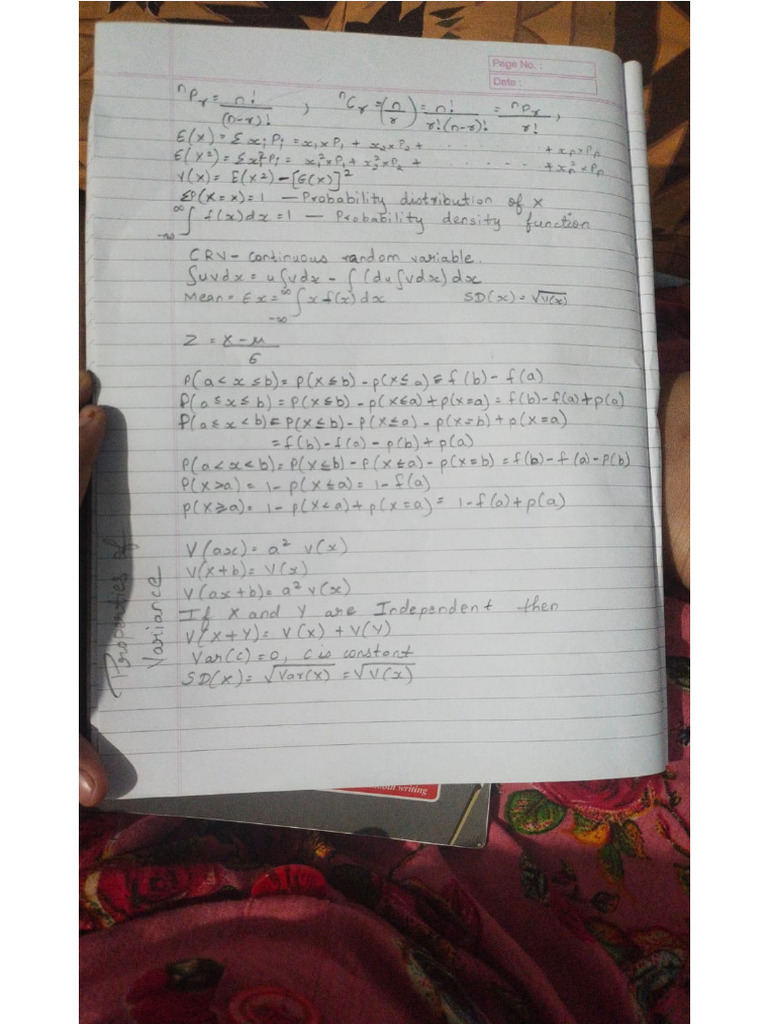 Page No. :
Date :
ⁿPᵣ = n!/(n-r)! , ⁿCᵣ = (n/r) = n!/r!(n-r)! = ⁿPᵣ/r! ,
E(X) = Σxᵢ Pᵢ = x₁×P₁ + x₂×P₂ + . . . . . . + xₙ×Pₙ
E(X²) = Σxᵢ²Pᵢ = x₁²×P₁ + x₂²×P₂ + . . . . . + xₙ²×Pₙ
V(X) = E(X²) - [E(X)]²
ΣP(X=x) = 1 — Probability distribution of X
-∞∫^∞ f(x)dx = 1 — Probability density function
CRV - Continuous random variable.
∫uvdx = u∫vdx - ∫(du∫vdx)dx
Mean = Ex = -∞∫^∞ x f(x)dx SD(x) = √V(x)
Z = X-μ/σ
P(a<x≤b) = P(X≤b) - P(X≤a) = f(b) - f(a)
P(a≤x≤b) = P(X≤b) - P(X≤a) + P(X=a) = f(b) - f(a) + P(a)
P(a≤x<b) = P(X≤b) - P(X≤a) - P(X=b) + P(X=a)
= f(b) - f(a) - P(b) + P(a)
P(a<x<b) = P(X≤b) - P(X≤a) - P(X=b) = f(b) - f(a) - P(b)
P(X>a) = 1 - P(X≤a) = 1 - f(a)
P(X≥a) = 1 - P(X≤a) + P(X=a) = 1 - f(a) + P(a)
Properties of
Variance
V(ax) = a² V(x)
V(X+b) = V(x)
V(ax+b) = a² V(x)
If X and Y are Independent then
V(X+Y) = V(X) + V(Y)
Var(C) = 0, C is constant
SD(X) = √Var(X) = √V(x)
writing